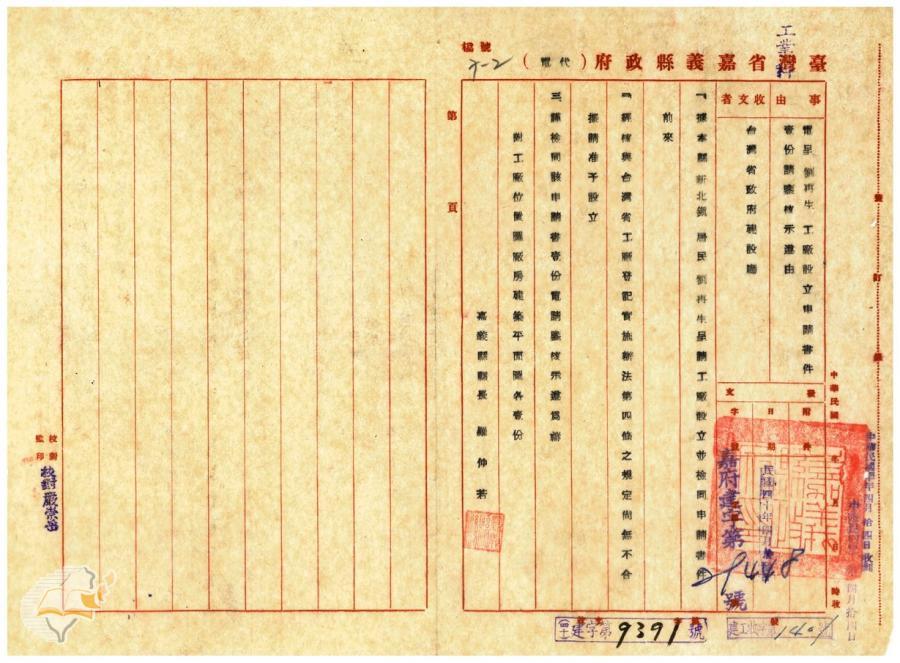 工業科
號檔
臺灣省嘉義縣政府（代電）
事由
收文者
電呈 劉再生 工廠設立申請書件
壹份請鑒核示遵由
台灣省政府建設廳
一、據本縣新北鎮居民劉再生呈請工廠設立並檢同申請書件
前來
二、經核與台灣省工廠登記實施辦法第四條之規定尚無不合
擬請准予設立
三、謹檢同該申請書壹份電請鑒核示遵爲禱
附工廠位置圖廠房建築平面圖各壹份
嘉義縣縣長 羅仲若
發文
附件
日期
字號
中華民國 年 月 日 時收
嘉府建字第
號
建字第9391號
第 頁
校對
監印
裝
訂
線